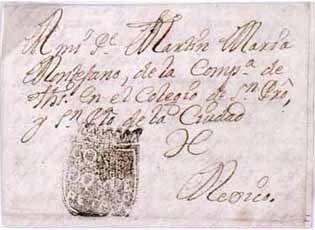 A mi P.e Martin Maria
Montejano, de la Comp.a de
Jhs. En el Colegio de S.n Pro,
y S.n Plo de la Ciudad
de
Mexico.